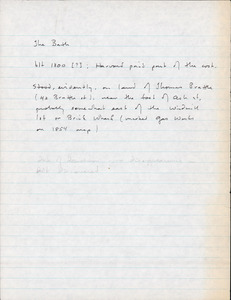 The Bath
blt 1800 [?]; Harvard paid part of the cost.
Stood, evidently, on land of Thomas Brattle
(40 Brattle st.), near the foot of Ash st,
probably somewhat east of the Windmill
lot or Brick Wharf (marked Gas Works
on 1854 map)